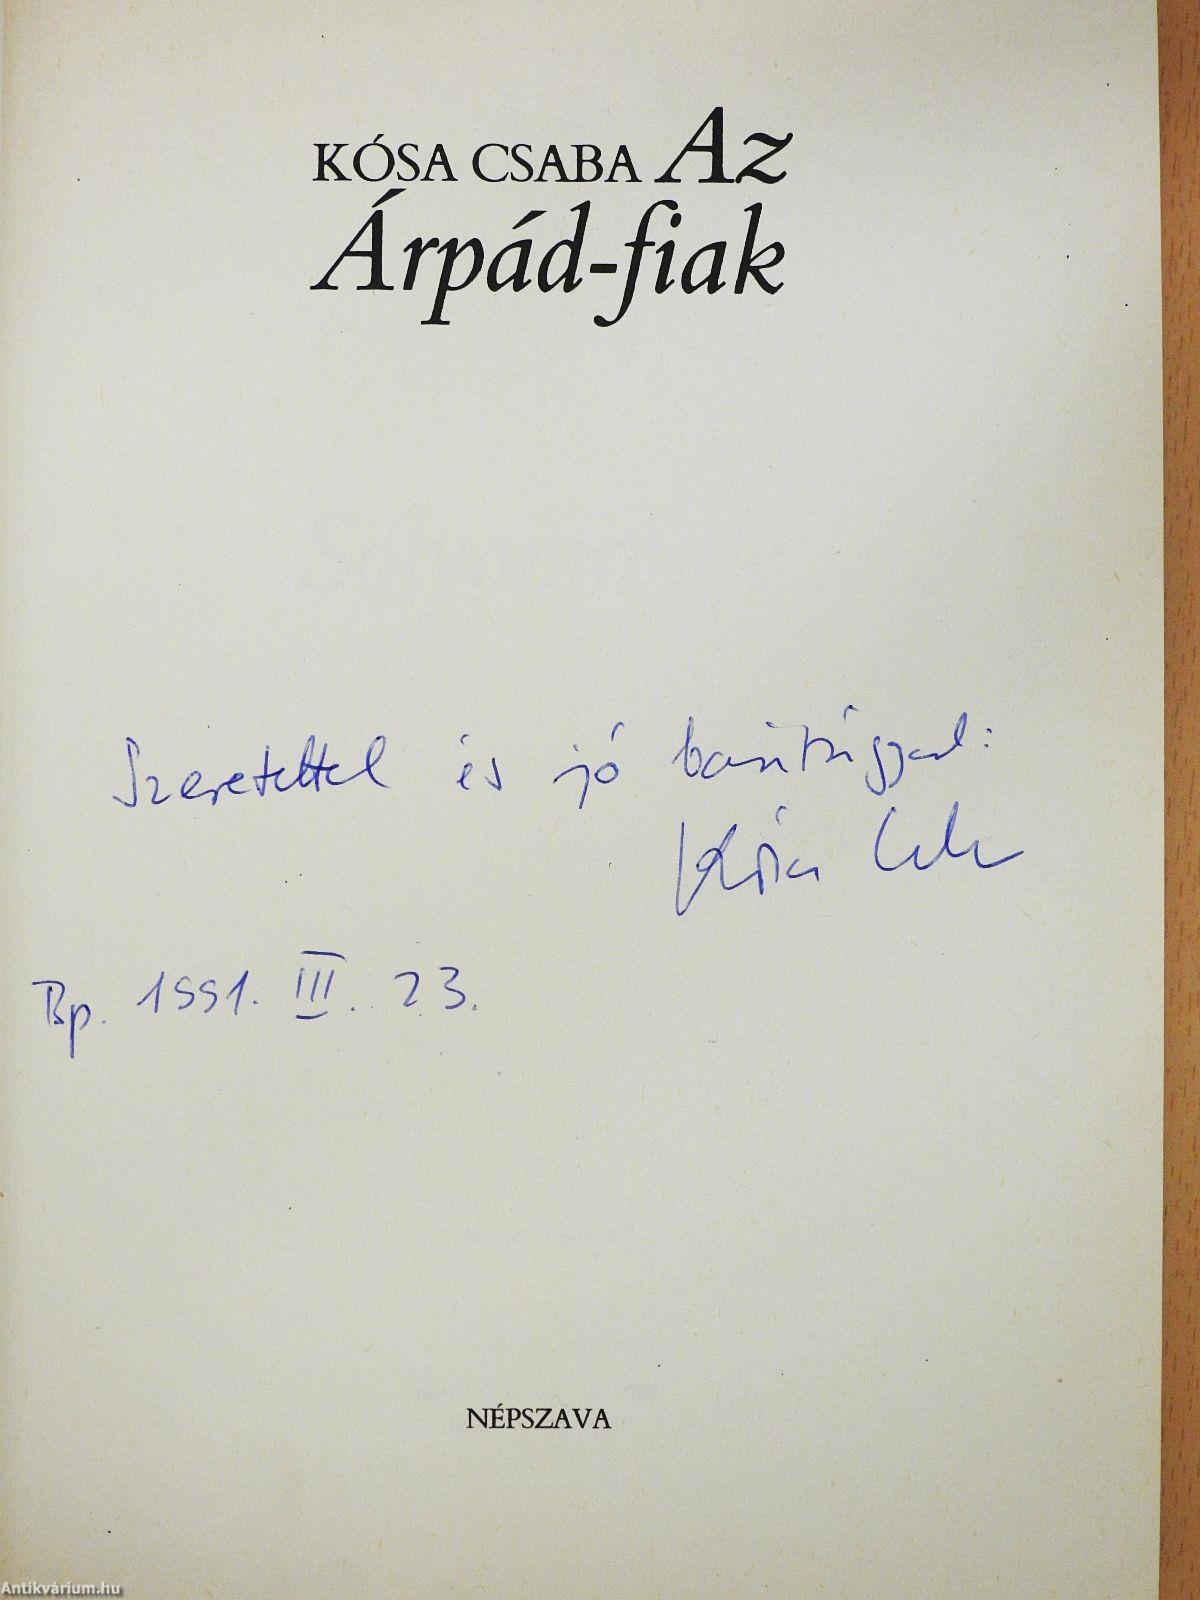 KÓSA CSABA Az
Árpád-fiak
Szeretettel és jó barátsággal:
Kósa Csaba
Bp. 1991. III. 23.
NÉPSZAVA
Antikvárium.hu